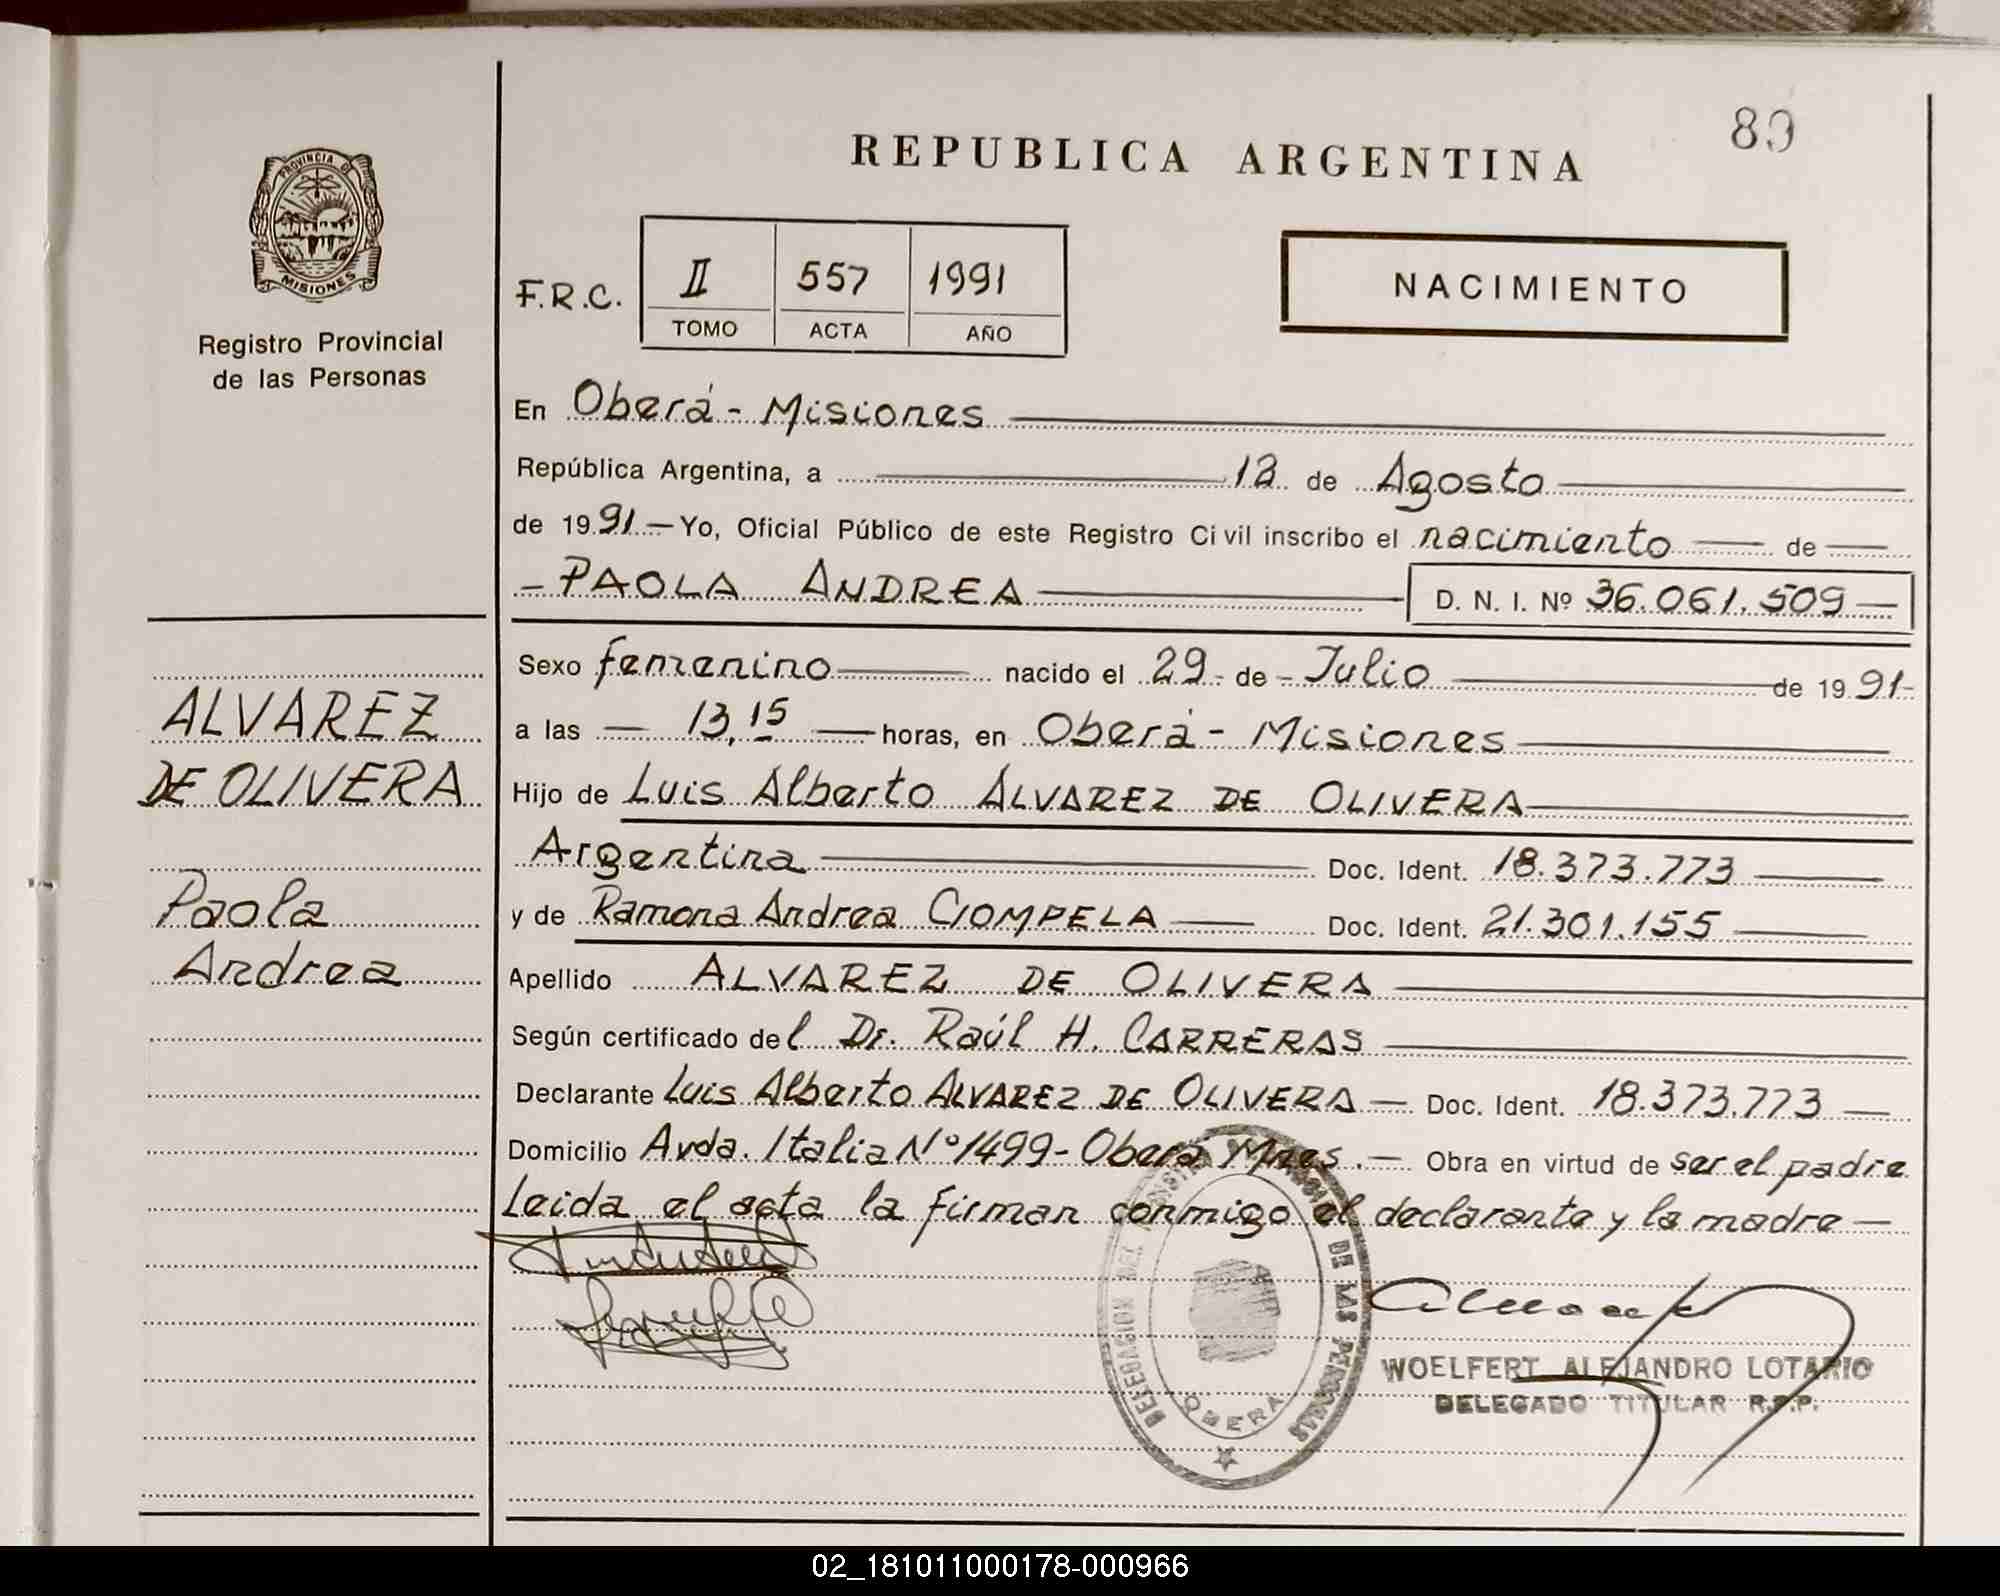 89
REPUBLICA ARGENTINA
PROVINCIA D
MISIONES
Registro Provincial
de las Personas
F.R.C.
II 557 1991
TOMO ACTA AÑO
NACIMIENTO
En Oberá - Misiones
República Argentina, a 12 de Agosto
de 1991.- Yo, Oficial Público de este Registro Civil inscribo el nacimiento de
- PAOLA ANDREA D. N. I. Nº 36.061.509
Sexo femenino nacido el 29 de Julio de 1991-
a las - 13,15 horas, en Oberá - Misiones
Hijo de Luis Alberto ALVAREZ DE OLIVERA
Argentina Doc. Ident. 18.373.773
y de Ramona Andrea CIOMPELA Doc. Ident. 21.301.155
Apellido ALVAREZ DE OLIVERA
Según certificado del Dr. Raúl H. CARRERAS
Declarante Luis Alberto ALVAREZ DE OLIVERA - Doc. Ident. 18.373.773
Domicilio Avda. Italia Nº 1499 - Oberá Mnes. - Obra en virtud de ser el padre
Leida el acta la firman conmigo el declarante y la madre -
ALVAREZ
DE OLIVERA
Paola
Andrea
DELEGACION DEL DE LAS PERSONAS
OBERA
WOELFERT ALEJANDRO LOTARIO
DELEGADO TITULAR R.P.P.
02_181011000178-000966